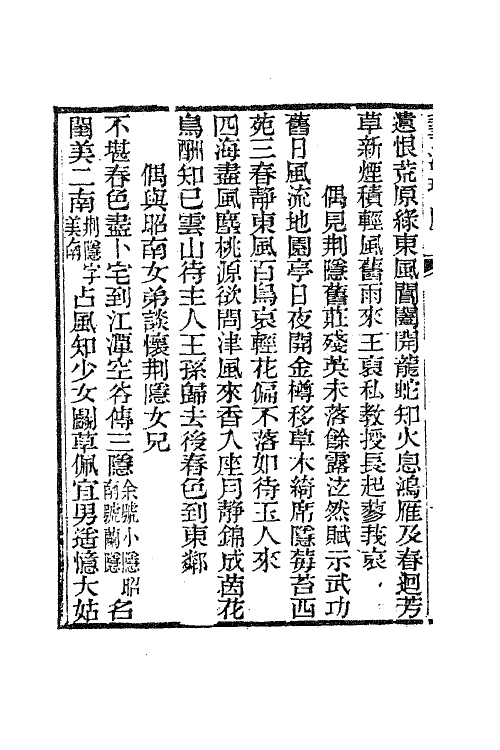 遺恨荒原綠東風閶闔開龍蛇知火息鴻雁及春迴芳
草新煙積輕風舊雨來王哀私教授長起蓼莪哀
偶見荆隱舊莊殘英未落餘露泫然賦示武功
舊日風流地園亭日夜開金樽移草木綺席隱莓苔西
苑三春靜東風百鳥哀輕花偏不落如待玉人來
四海盡風塵桃源欲問津風來香入座月靜錦成茵花
鳥酬知已雲山待主人王孫歸去後春色到東鄰
偶與昭南女弟談懷荆隱女兄
不堪春色盡卜宅到江潭空谷傳三隱余號小隱昭南號蘭隱名
閨美二南荆隱字美南占風知少女鬬草佩宜男適憶大姑